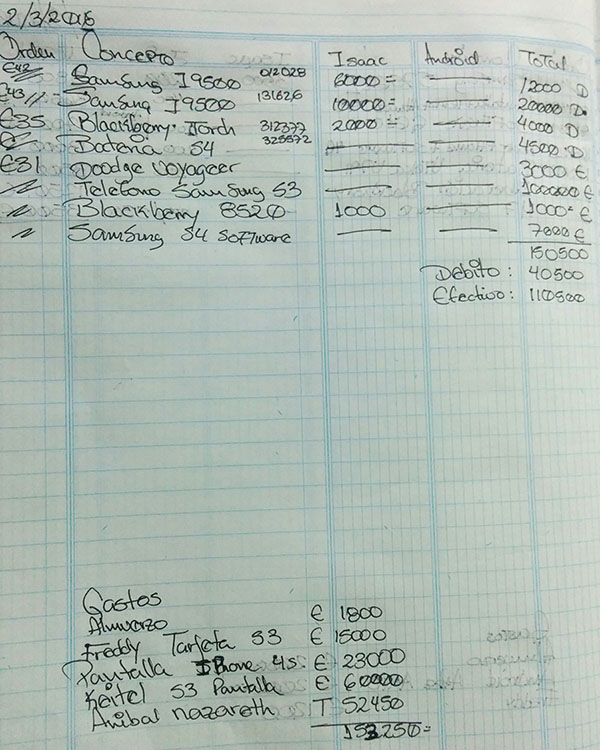 2/3/2016
Orden Concepto Isaac Android Total
E42 Samsung I9500 012028 6000= 12000 D
E43 Samsung I9500 131626 10000= 20000 D
E35 Blackberry Torch 312377 2000= 4000 D
Bateria S4 325572 4500 D
E31 Doodge Voyageer 3000 E
Telefono Samsung S3 100000 E
Blackberry 8520 1000 1000= E
Samsung S4 Software 7000 E
150500
Debito: 40500
Efectivo: 110500
Gastos
Almuerzo E 1800
Freddy Tarjeta S3 E 15000
Pantalla IPhone 4s. E 23000
Keitel S3 Pantalla E 60000
Anibal nazareth T 52450
153250=